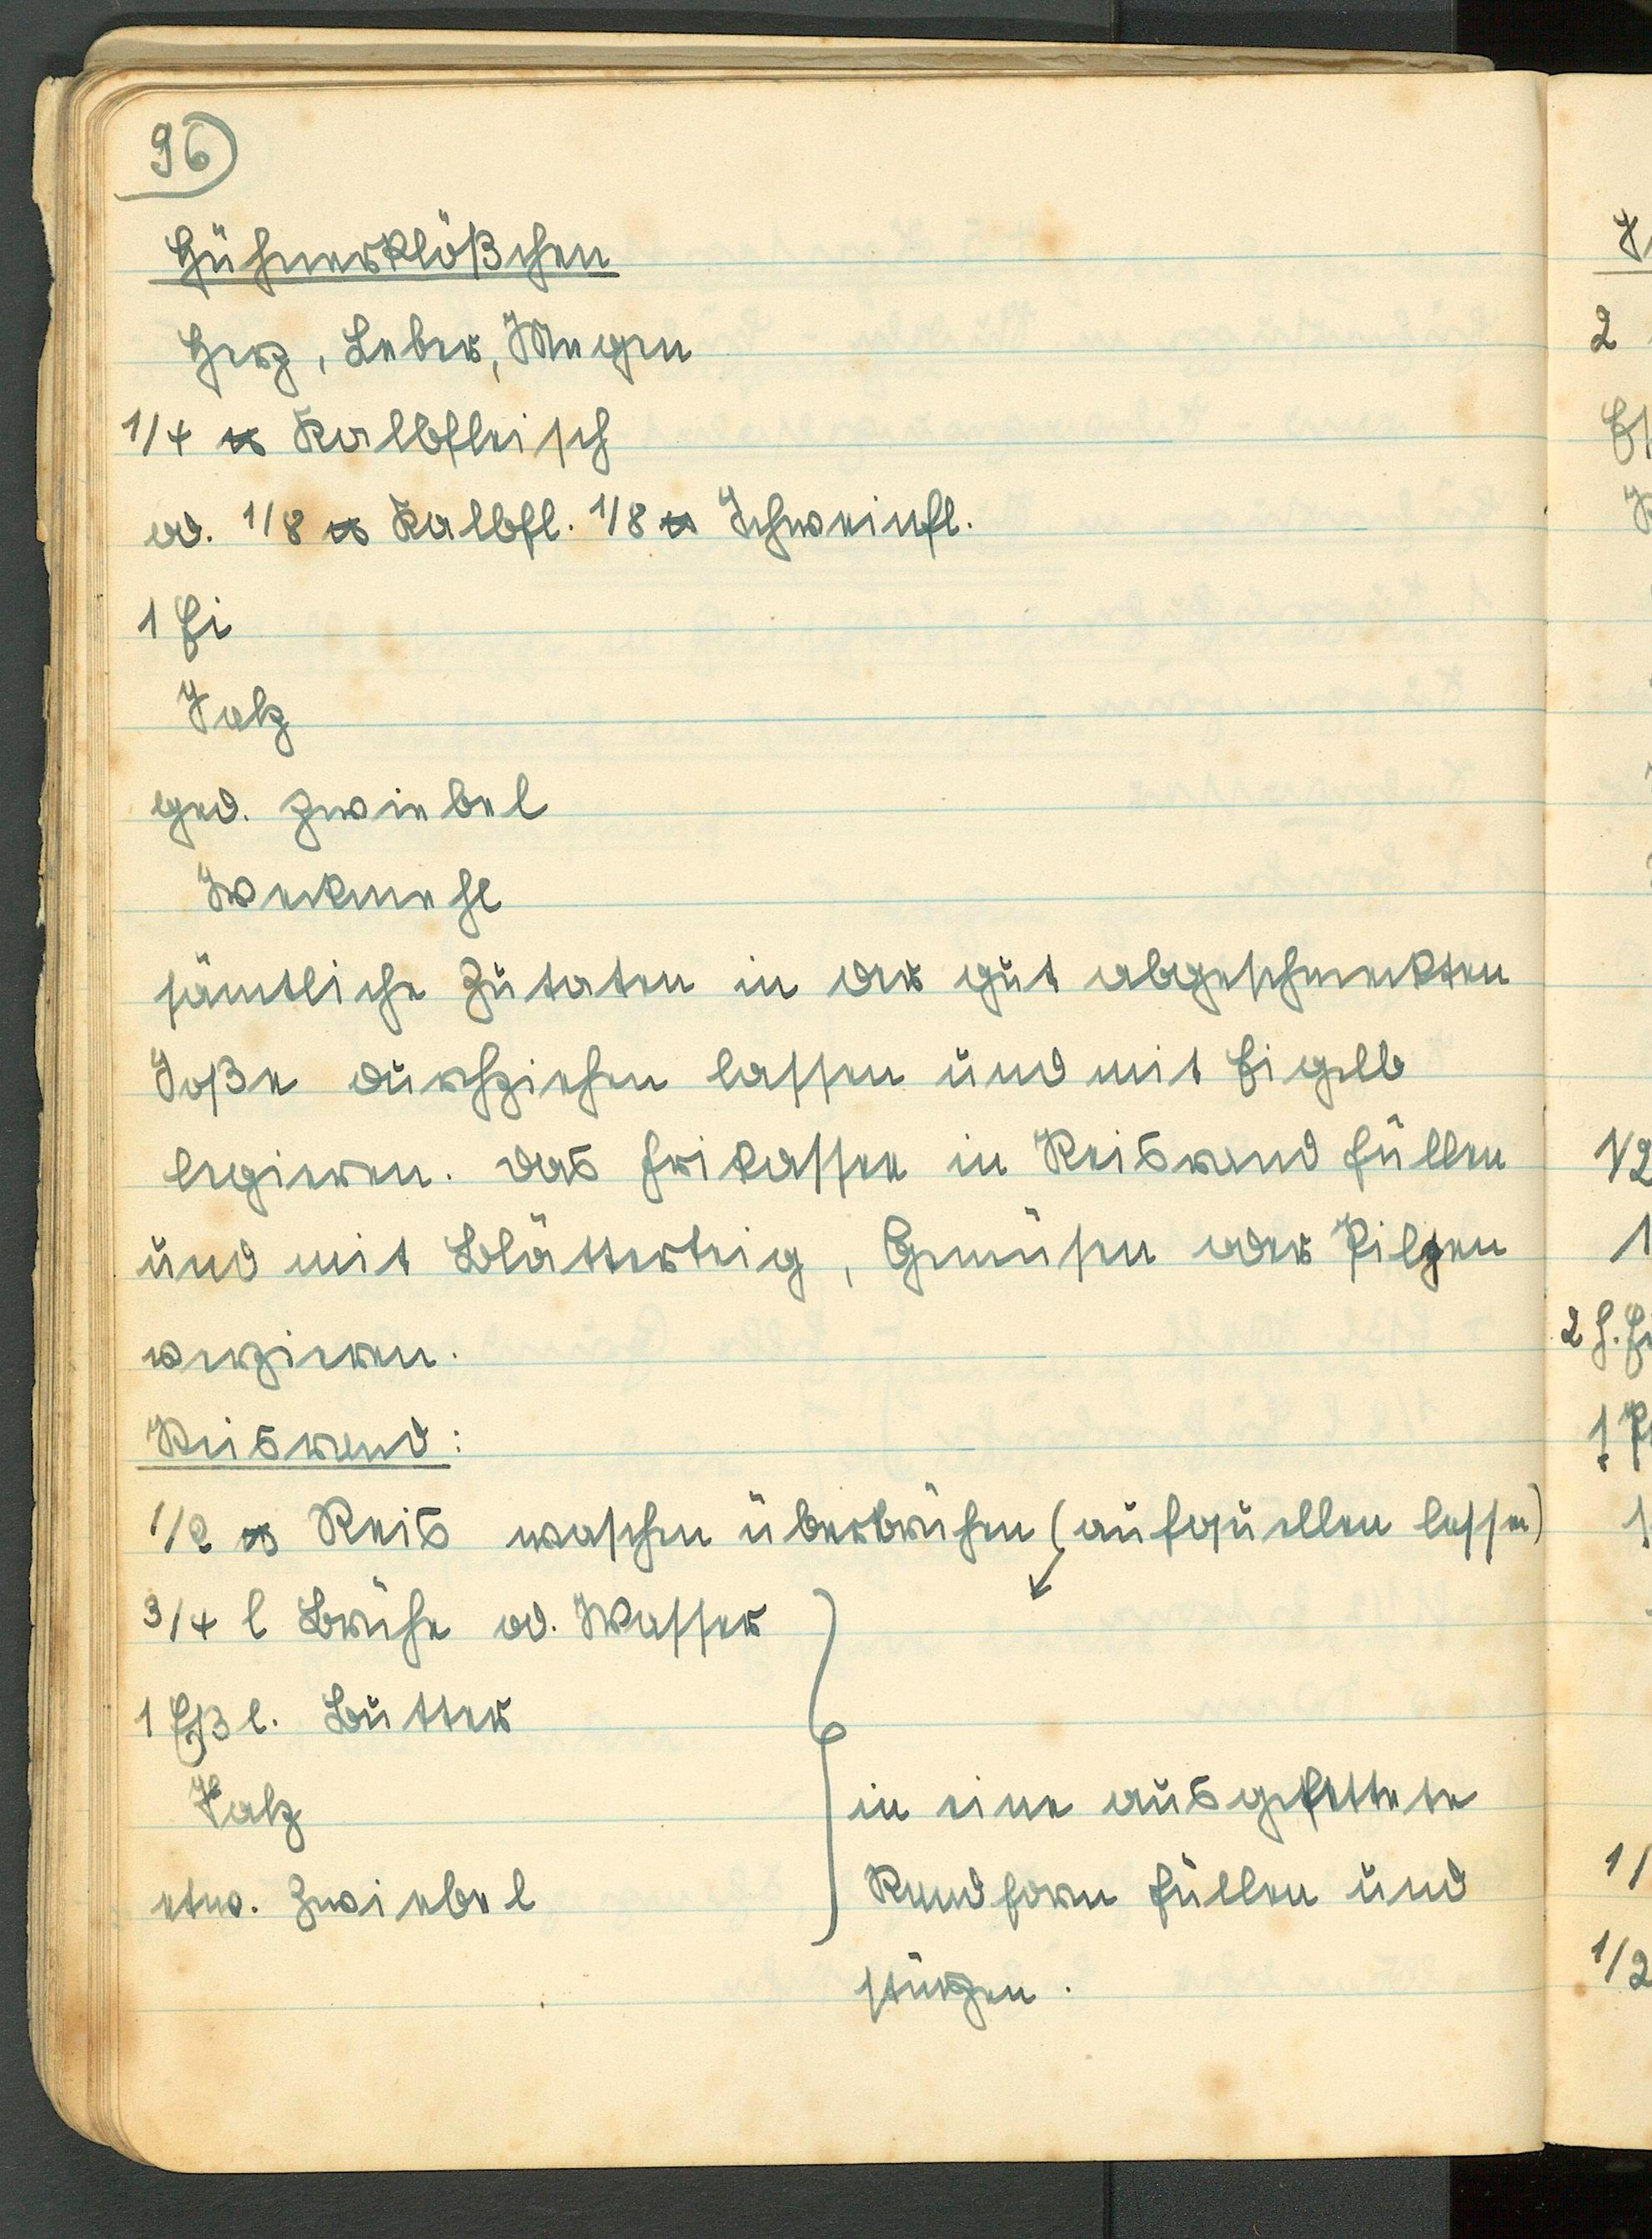 96
Hühnerklößchen
Herz, Leber, Magen
1/4 ℔ Kalbfleisch
od. 1/8 ℔ Kalbfl. 1/8 ℔ Schweinfl.
1 Ei
Salz
ged. Zwiebel
Weckmehl
sämtliche Zutaten in der gut abgeschmeckten
Soße durchziehen lassen und mit Eigelb
legieren. Das Frikassee in Reisrand füllen
und mit Blätterteig, Gemüsen oder Pilzen
verzieren.
Reisrand:
1/2 ℔ Reis waschen überbrühen (aufquellen lassen)
3/4 l Brühe od. Wasser
1 Eßl. Butter
Salz
etw. Zwiebel
in eine ausgefettete
Randform füllen und
stürzen.
2
1/2
1
2 h. Ei
1
1/2